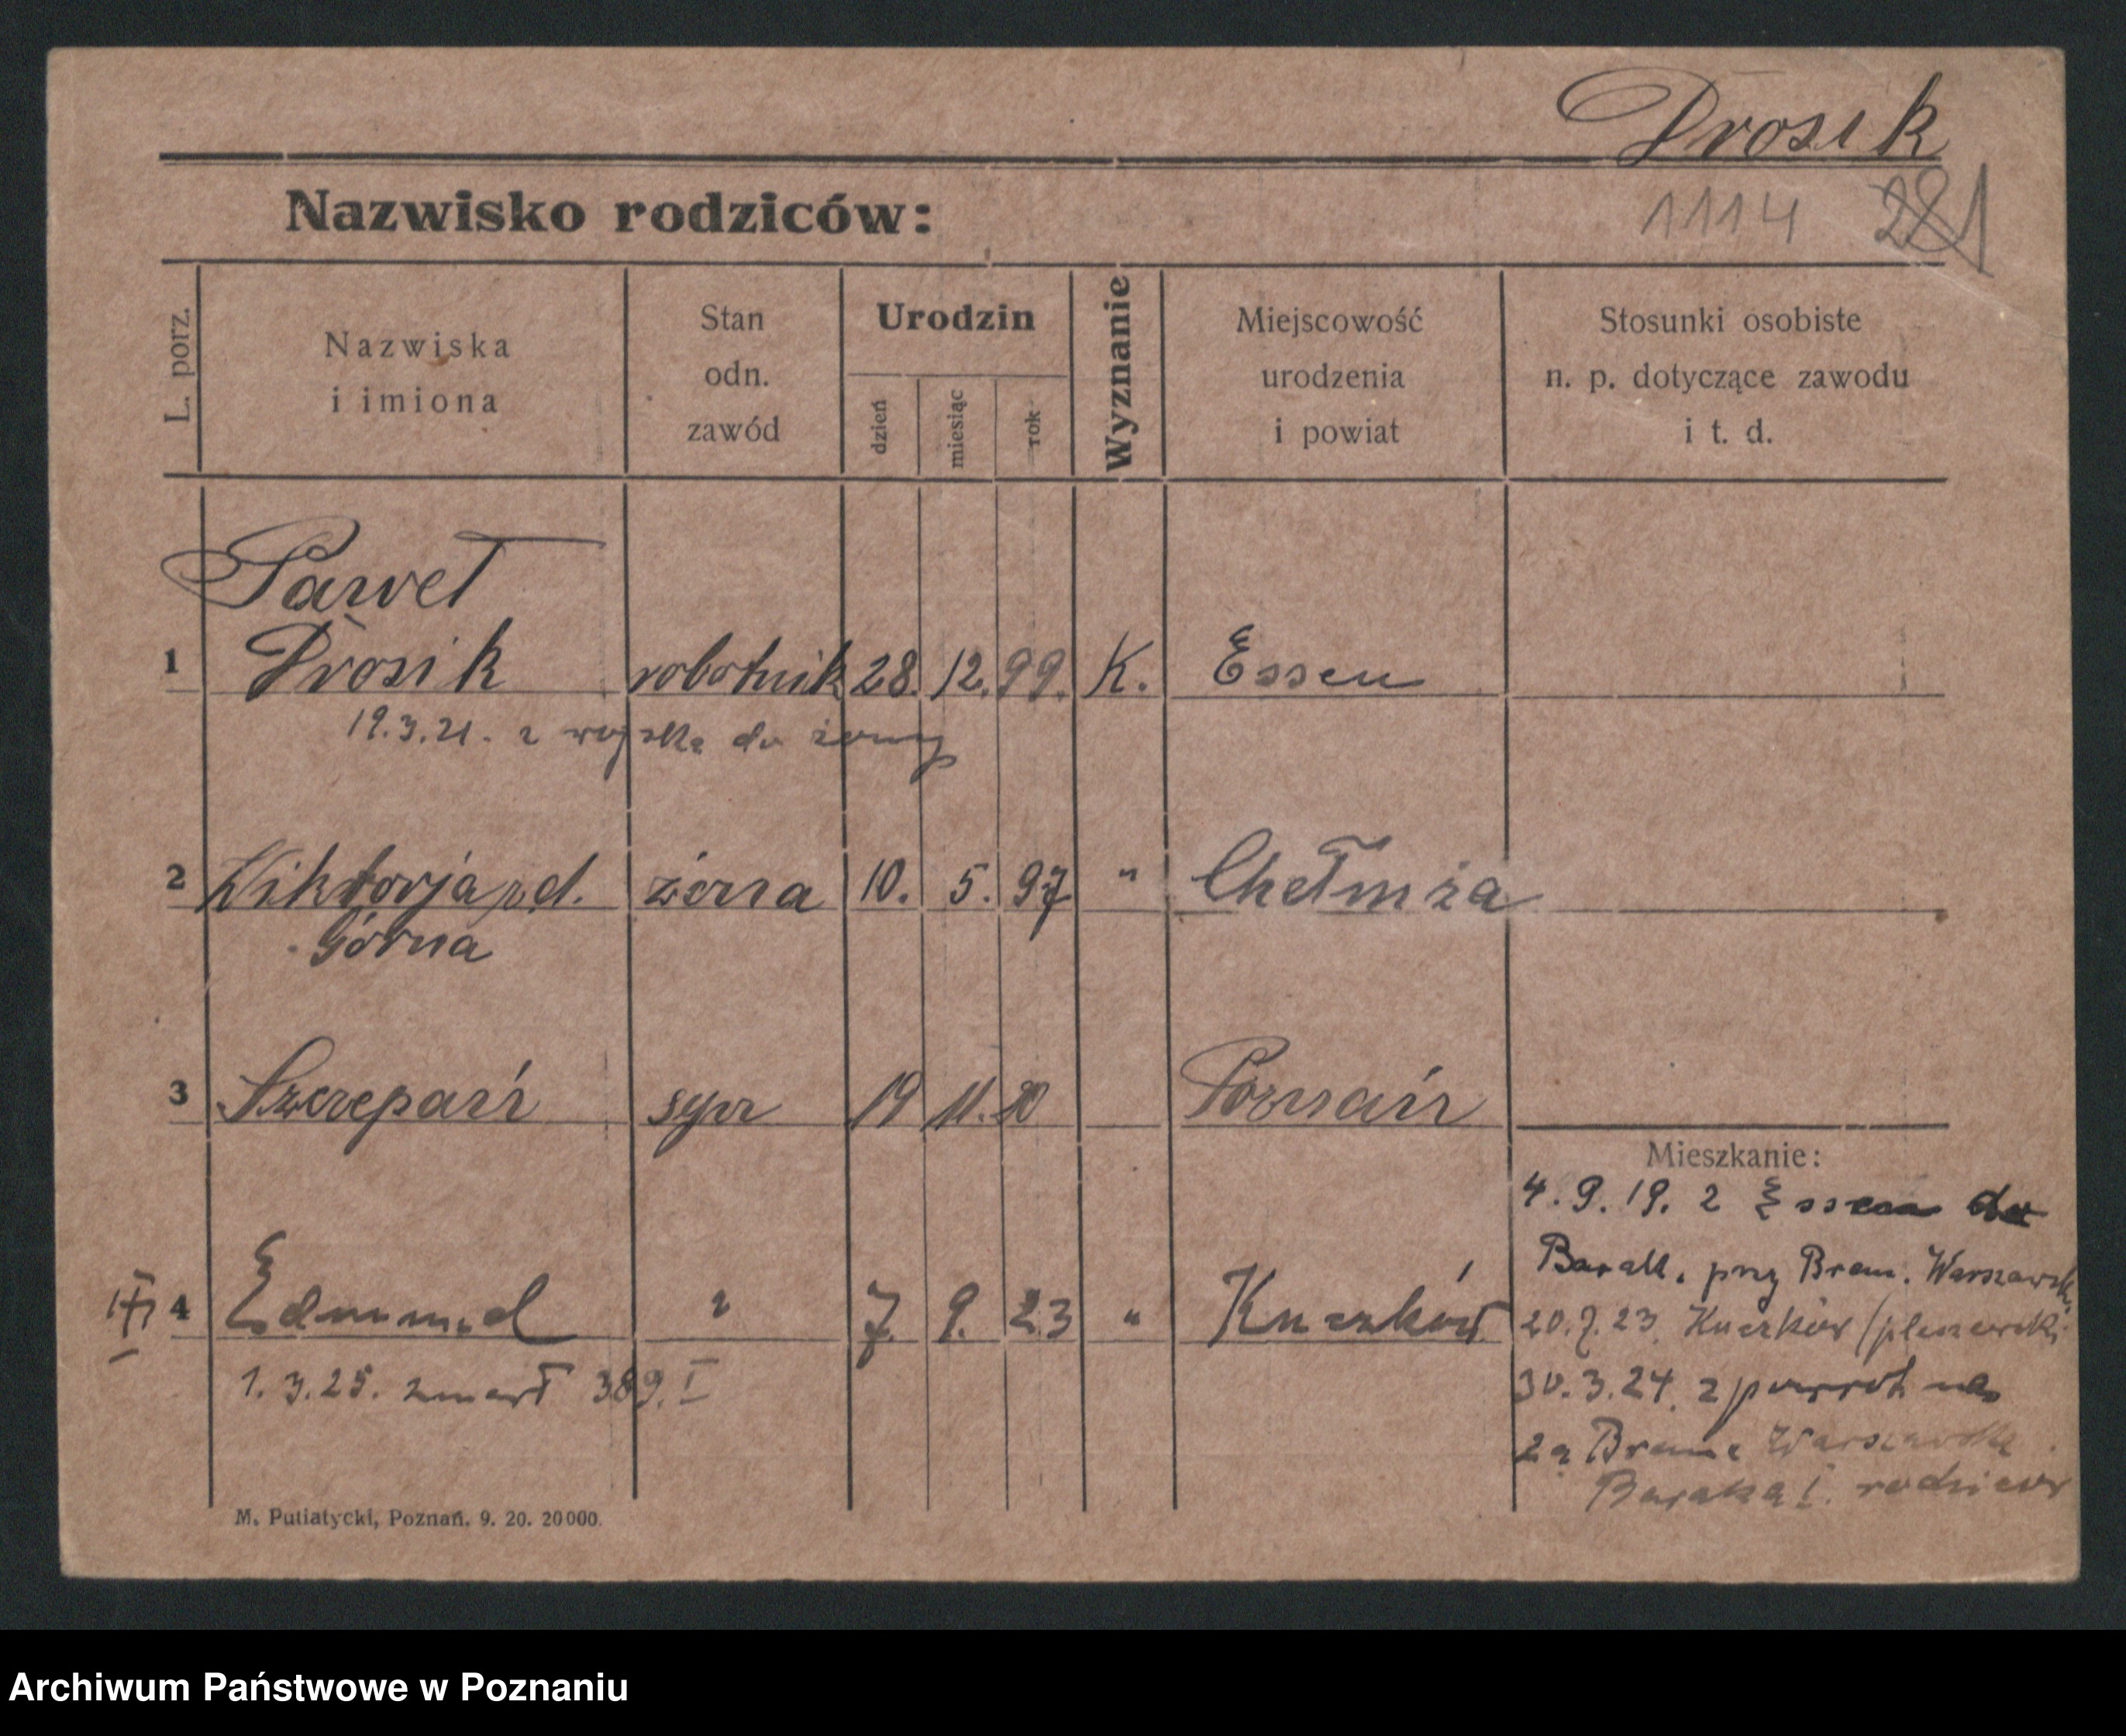 Drosik
Nazwisko rodziców:
1114 281
L. porz.
Nazwiska
i imiona
Stan
odn.
zawód
Urodzin
dzień
miesiąc
rok
Wyznanie
Miejscowość
urodzenia
i powiat
Stosunki osobiste
n. p. dotyczące zawodu
i t. d.
Paweł
1 Drosik robotnik 28. 12. 99. K. Essen
19.3.21. z wojska do żony
2 Wiktorja pd. żona 10. 5. 97 " Chełmża
Górna
3 Szczepań syn 19 11. 20 Poznań
Mieszkanie:
4. 9. 19. z Essen
Barak. przy Bram. Warszawsk.
III 4 Edmund " 7. 9. 23 " Kuczków
20.7.23. Kuczków (pleszewski
1. 3. 25. zmarł 389. I
30. 3. 24. z powrot na
zą Bramę Warszawską
Baraką I. rodziców
M. Putiatycki, Poznań. 9. 20. 20000.
Archiwum Państwowe w Poznaniu